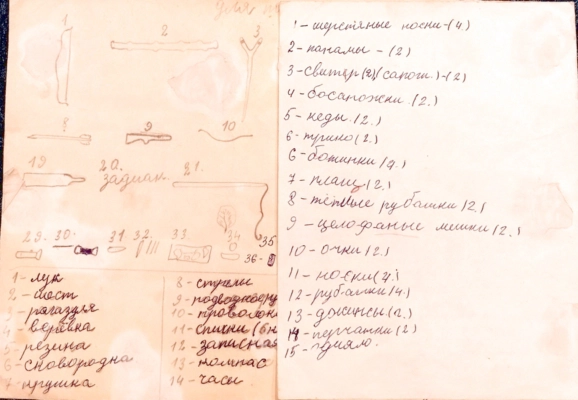 1 2 3
8 9 10
19 20. 21.
задиак
29. 30. 31 32. 33. 34
35
36-
1 - лук
2 - мост
3 - рагазля
4 - верёвка
5 - резина
6 - сковородка
7 - крушка
8 - стрелы
9 - подводное ру
10 - проволок
11 - спички (6 к
12 - записная
13 - компас
14 - часы
1 - шерстяные носки - (4)
2 - панамы - (2)
3 - свитер (2) (сапог.) - (2)
4 - босаножки. (2.)
5 - кеды (2.)
6 - (2.)
6 - ботинки (2.)
7 - плащ (2.)
8 - тёплые рубашки (2.)
9 - целофаные мешки (2.)
10 - очки (2.)
11 - носки (4)
12 - рубашки (4.)
13 - джинсы (2.)
14 - перчатки (2)
15 - одияло.